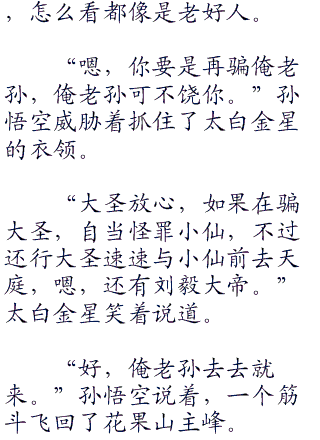 ，怎么看都像是老好人。
“嗯，你要是再骗俺老
孙，俺老孙可不饶你。”孙
悟空威胁着抓住了太白金星
的衣领。
“大圣放心，如果在骗
大圣，自当怪罪小仙，不过
还行大圣速速与小仙前去天
庭，嗯，还有刘毅大帝。”
太白金星笑着说道。
“好，俺老孙去去就
来。”孙悟空说着，一个筋
斗飞回了花果山主峰。